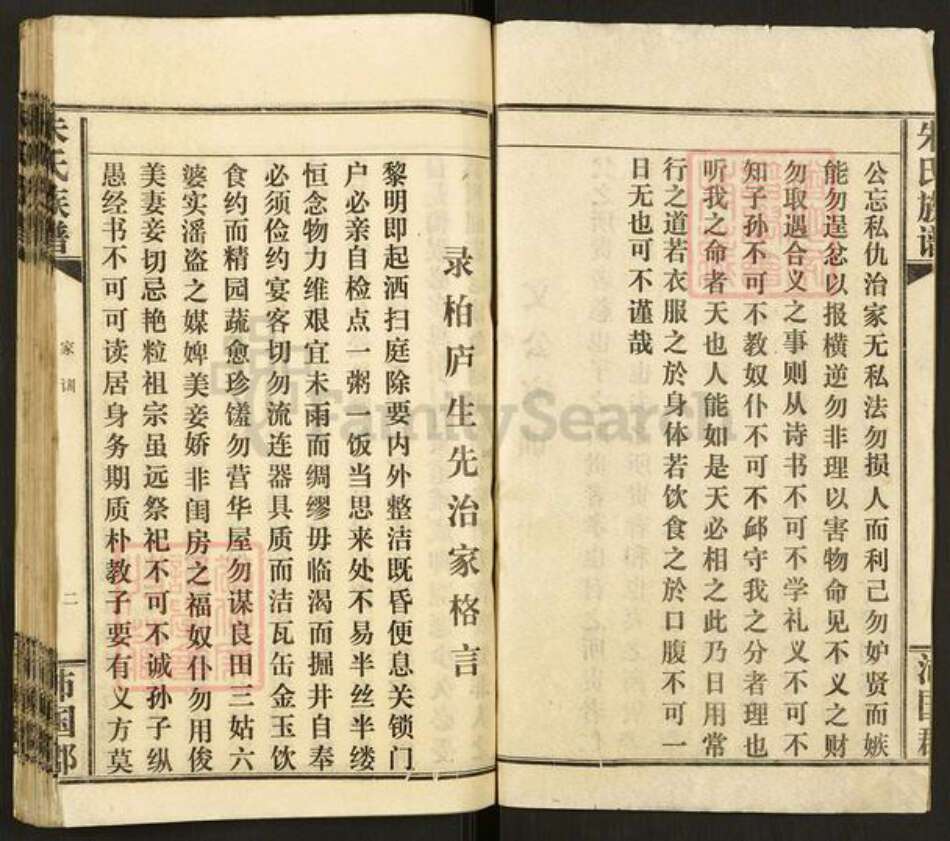 公忘私仇治家无私法勿损人而利己勿妒贤而嫉
能勿逞忿以报横逆勿非理以害物命见不义之财
勿取遇合义之事则从诗书不可不学礼义不可不
知子孙不可不教奴仆不可不邮守我之分者理也
听我之命者天也人能如是天必相之此乃日用常
行之道若衣服之於身体若饮食之於口腹不可一
日无也可不谨哉
录柏庐生先治家格言
黎明即起洒扫庭除要内外整洁既昏便息关锁门
户必亲自检点一粥一饭当思来处不易半丝半缕
恒念物力维艰宜未雨而绸缪毋临渴而掘井自奉
必须俭约宴客切勿流连器具质而洁瓦缶金玉饮
食约而精园蔬愈珍馐勿营华屋勿谋良田三姑六
婆实滛盗之媒婢美妾娇非闺房之福奴仆勿用俊
美妻妾切忌艳粒祖宗虽远祭祀不可不诚孙子纵
愚经书不可可读居身务期质朴教子要有义方莫
朱氏族谱
家训
二
沛国郡
FamilySearch